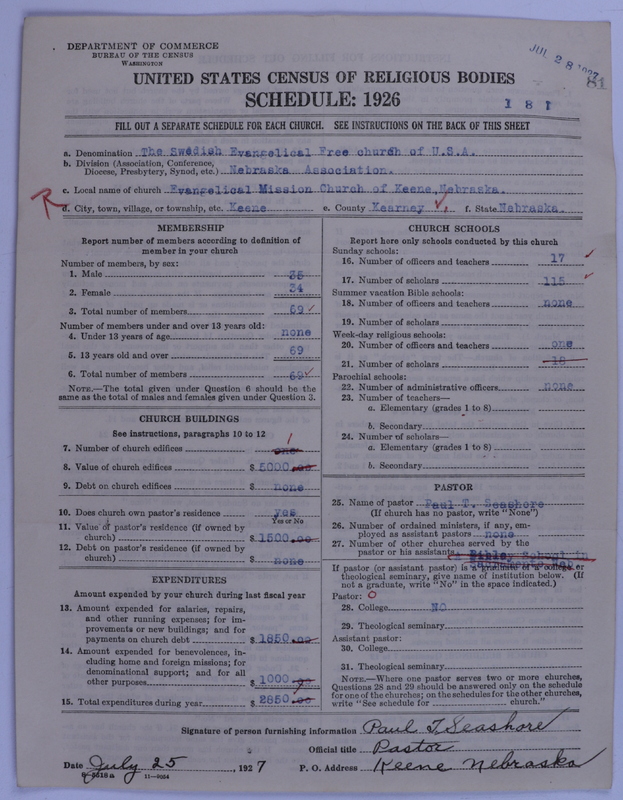 DEPARTMENT OF COMMERCE
BUREAU OF THE CENSUS
WASHINGTON
JUL 28 1927
81
UNITED STATES CENSUS OF RELIGIOUS BODIES
SCHEDULE: 1926
181
FILL OUT A SEPARATE SCHEDULE FOR EACH CHURCH. SEE INSTRUCTIONS ON THE BACK OF THIS SHEET
a. Denomination The Swedish Evangelical Free church of U.S.A.
b. Division (Association, Conference, Diocese, Presbytery, Synod, etc.) Nebraska Association.
c. Local name of church Evangelical Mission Church of Keene, Nebraska.
d. City, town, village, or township, etc. Keene e. County Kearney f. State Nebraska.
MEMBERSHIP
Report number of members according to definition of
member in your church
Number of members, by sex:
1. Male 35
2. Female 34
3. Total number of members 69
Number of members under and over 13 years old:
4. Under 13 years of age none
5. 13 years old and over 69
6. Total number of members 69
NOTE.—The total given under Question 6 should be the
same as the total of males and females given under Question 3.
CHURCH BUILDINGS
See instructions, paragraphs 10 to 12
7. Number of church edifices one 1
8. Value of church edifices $ 5000.00
9. Debt on church edifices $ none
10. Does church own pastor's residence? yes
Yes or No
11. Value of pastor's residence (if owned by
church) $ 1500.00
12. Debt on pastor's residence (if owned by
church) $ none
EXPENDITURES
Amount expended by your church during last fiscal year
13. Amount expended for salaries, repairs,
and other running expenses; for im-
provements or new buildings; and for
payments on church debt $ 1850.00
14. Amount expended for benevolences, in-
cluding home and foreign missions; for
denominational support; and for all
other purposes $ 1000.00
15. Total expenditures during year $ 2850.00
CHURCH SCHOOLS
Report here only schools conducted by this church
Sunday schools:
16. Number of officers and teachers 17
17. Number of scholars 115
Summer vacation Bible schools:
18. Number of officers and teachers none
19. Number of scholars
Week-day religious schools:
20. Number of officers and teachers one
21. Number of scholars 18
Parochial schools:
22. Number of administrative officers none
23. Number of teachers—
a. Elementary (grades 1 to 8)
b. Secondary
24. Number of scholars—
a. Elementary (grades 1 to 8)
b. Secondary
PASTOR
25. Name of pastor Paul T. Seashore
(If church has no pastor, write "None")
26. Number of ordained ministers, if any, em-
ployed as assistant pastors none
27. Number of other churches served by the
pastor or his assistants Bible School in
If pastor (or assistant pastor) is a graduate of a college or
theological seminary, give name of institution below. (If
not a graduate, write "No" in the space indicated.)
Pastor: 0
28. College NO
29. Theological seminary
Assistant pastor:
30. College
31. Theological seminary
NOTE.—Where one pastor serves two or more churches,
Questions 28 and 29 should be answered only on the schedule
for one of the churches; on the schedules for the other churches,
write "See schedule for church."
Signature of person furnishing information Paul T. Seashore
Official title Pastor
Date July 25, 1927 P. O. Address Keene Nebraska
8-5218a 11—9034